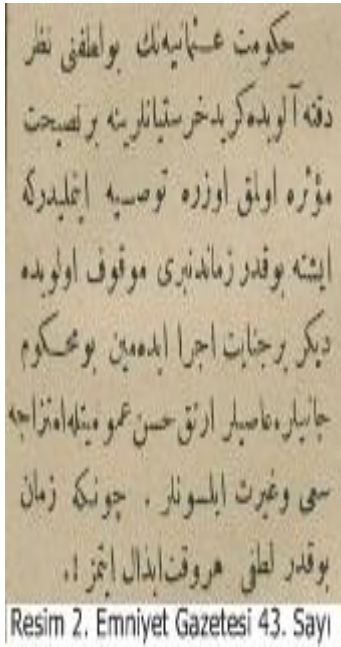 حكومت عثمانیه‌نك بو لطفنی نظر
دقته آلوبده كرید خرستیانلرینه بر نصیحت
مؤثره اولمق اوزره توصیه ایتملیدركه
ایشته بوقدر زماندنبری موقوف اولوبده
دیكر بر جنایت اجرا ایده‌مین بو محكوم
جانیلره عاصیلر ارتق حسن
سعی وغیرت ایلسونلر . چونكه زمان
بوقدر لطفی هر وقت ابذال ایتمز !.
Resim 2. Emniyet Gazetesi 43. Sayı